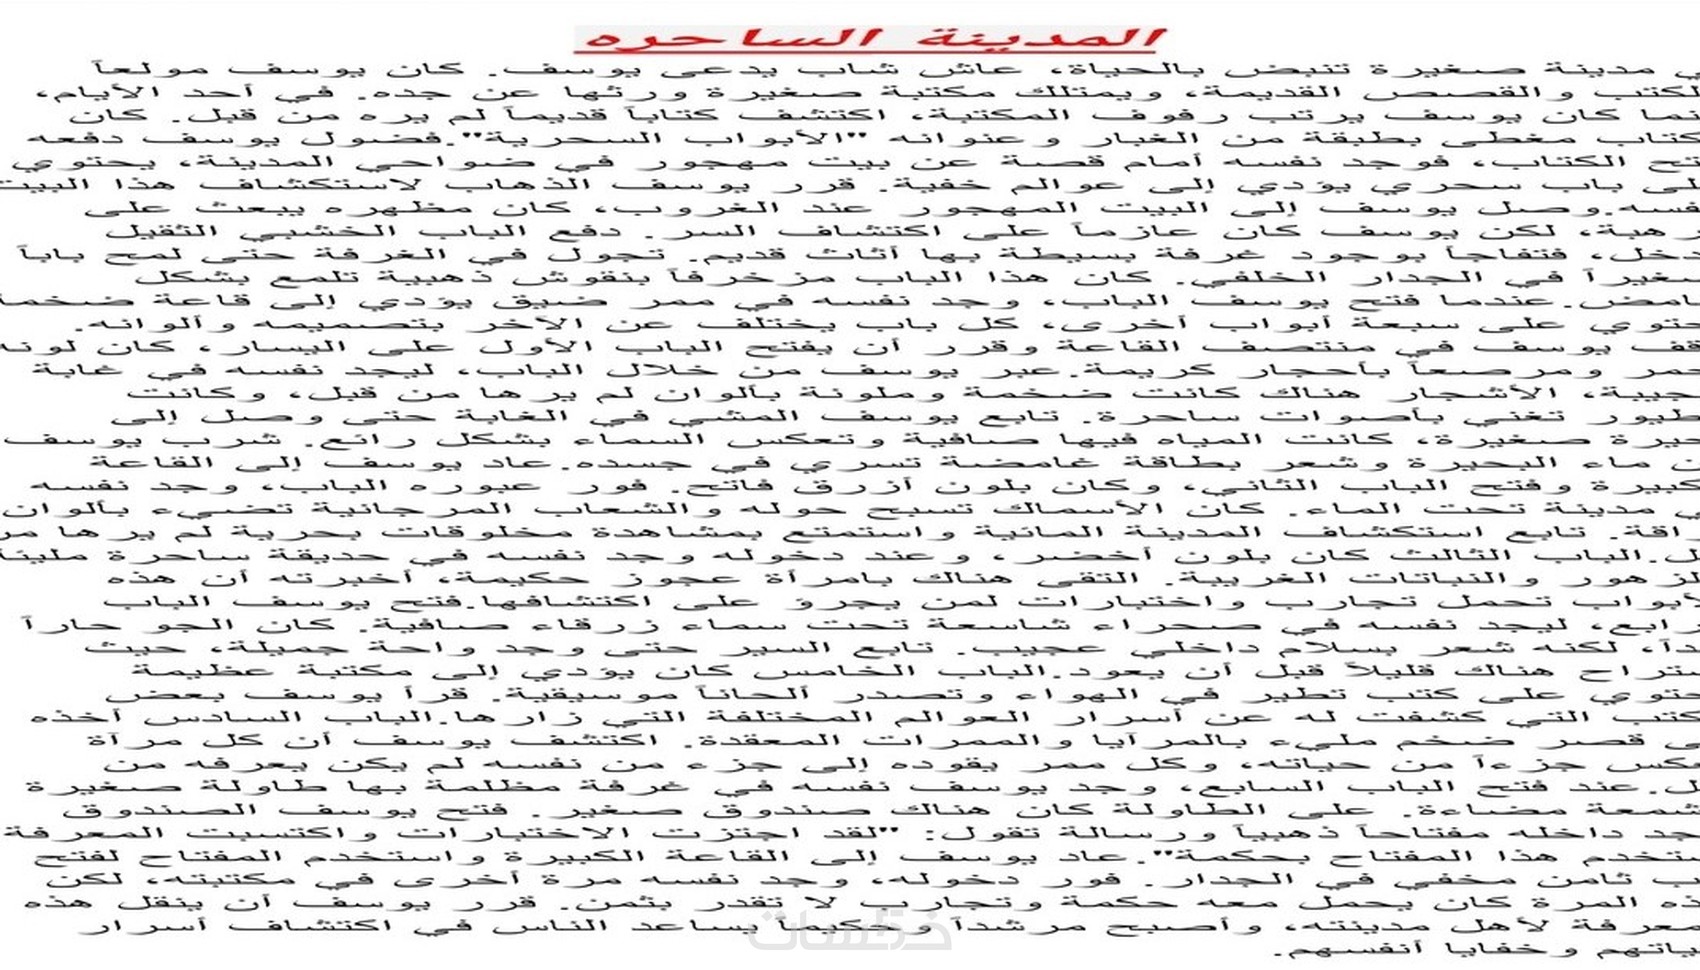 المدينة الساحره
ي مدينة صغيرة تنبض بالحياة، عاش شاب يدعى يوسف. كان يوسف مولعاً
لكتب والقصص القديمة، ويمتلك مكتبة صغيرة ورثها عن جده. في أحد الأيام،
نما كان يوسف يرتب رفوف المكتبة، اكتشف كتاباً قديماً لم يره من قبل. كان
كتاب مغطى بطبقة من الغبار وعنوانه "الأبواب السحرية".فضول يوسف دفعه
تح الكتاب، فوجد نفسه أمام قصة عن بيت مهجور في ضواحي المدينة، يحتوي
لى باب سحري يؤدي إلى عوالم خفية. قرر يوسف الذهاب لاستكشاف هذا البيت
فسه.وصل يوسف إلى البيت المهجور عند الغروب، كان مظهره يبعث على
رهبة، لكن يوسف كان عازماً على اكتشاف السر. دفع الباب الخشبي الثقيل
دخل، فتفاجأ بوجود غرفة بسيطة بها أثاث قديم. تجول في الغرفة حتى لمح باباً
صغيراً في الجدار الخلفي. كان هذا الباب مزخرفاً بنقوش ذهبية تلمع بشكل
امض.عندما فتح يوسف الباب، وجد نفسه في ممر ضيق يؤدي إلى قاعة ضخمة
حتوي على سبعة أبواب أخرى، كل باب يختلف عن الآخر بتصميمه وألوانه.
قف يوسف في منتصف القاعة وقرر أن يفتح الباب الأول على اليسار، كان لونه
حمر ومرصعاً بأحجار كريمة.عبر يوسف من خلال الباب، ليجد نفسه في غابة
جيبة، الأشجار هناك كانت ضخمة وملونة بألوان لم يرها من قبل، وكانت
طيور تغني بأصوات ساحرة. تابع يوسف المشي في الغابة حتى وصل إلى
حيرة صغيرة، كانت المياه فيها صافية وتعكس السماء بشكل رائع. شرب يوسف
ن ماء البحيرة وشعر بطاقة غامضة تسري في جسده.عاد يوسف إلى القاعة
كبيرة وفتح الباب الثاني، وكان بلون أزرق فاتح. فور عبوره الباب، وجد نفسه
ي مدينة تحت الماء. كان الأسماك تسبح حوله والشعاب المرجانية تضيء بألوان
راقة. تابع استكشاف المدينة المائية واستمتع بمشاهدة مخلوقات بحرية لم يرها من
ل.الباب الثالث كان بلون أخضر، وعند دخوله وجد نفسه في حديقة ساحرة مليئة
لزهور والنباتات الغريبة. التقى هناك بامرأة عجوز حكيمة، أخبرته أن هذه
أبواب تحمل تجارب واختبارات لمن يجرؤ على اكتشافها.فتح يوسف الباب
رابع، ليجد نفسه في صحراء شاسعة تحت سماء زرقاء صافية. كان الجو حاراً
دأ، لكنه شعر بسلام داخلي عجيب. تابع السير حتى وجد واحة جميلة، حيث
ستراح هناك قليلاً قبل أن يعود.الباب الخامس كان يؤدي إلى مكتبة عظيمة
حتوي على كتب تطير في الهواء وتصدر ألحاناً موسيقية. قرأ يوسف بعض
كتب التي كشفت له عن أسرار العوالم المختلفة التي زارها.الباب السادس أخذه
ى قصر ضخم مليء بالمرايا والممرات المعقدة. اكتشف يوسف أن كل مرآة
عكس جزءاً من حياته، وكل ممر يقوده إلى جزء من نفسه لم يكن يعرفه من
ل.عند فتح الباب السابع، وجد يوسف نفسه في غرفة مظلمة بها طاولة صغيرة
شمعة مضاءة. على الطاولة كان هناك صندوق صغير. فتح يوسف الصندوق
جد داخله مفتاحاً ذهبياً ورسالة تقول: "لقد اجتزت الاختبارات واكتسبت المعرفة
ستخدم هذا المفتاح بحكمة".عاد يوسف إلى القاعة الكبيرة واستخدم المفتاح لفتح
ب ثامن مخفي في الجدار. فور دخوله، وجد نفسه مرة أخرى في مكتبته، لكن
ذه المرة كان يحمل معه حكمة وتجارب لا تقدر بثمن. قرر يوسف أن ينقل هذه
معرفة لأهل مدينته، وأصبح مرشداً وحكيماً يساعد الناس في اكتشاف أسرار
ياتهم وخفايا أنفسهم.
خمسات